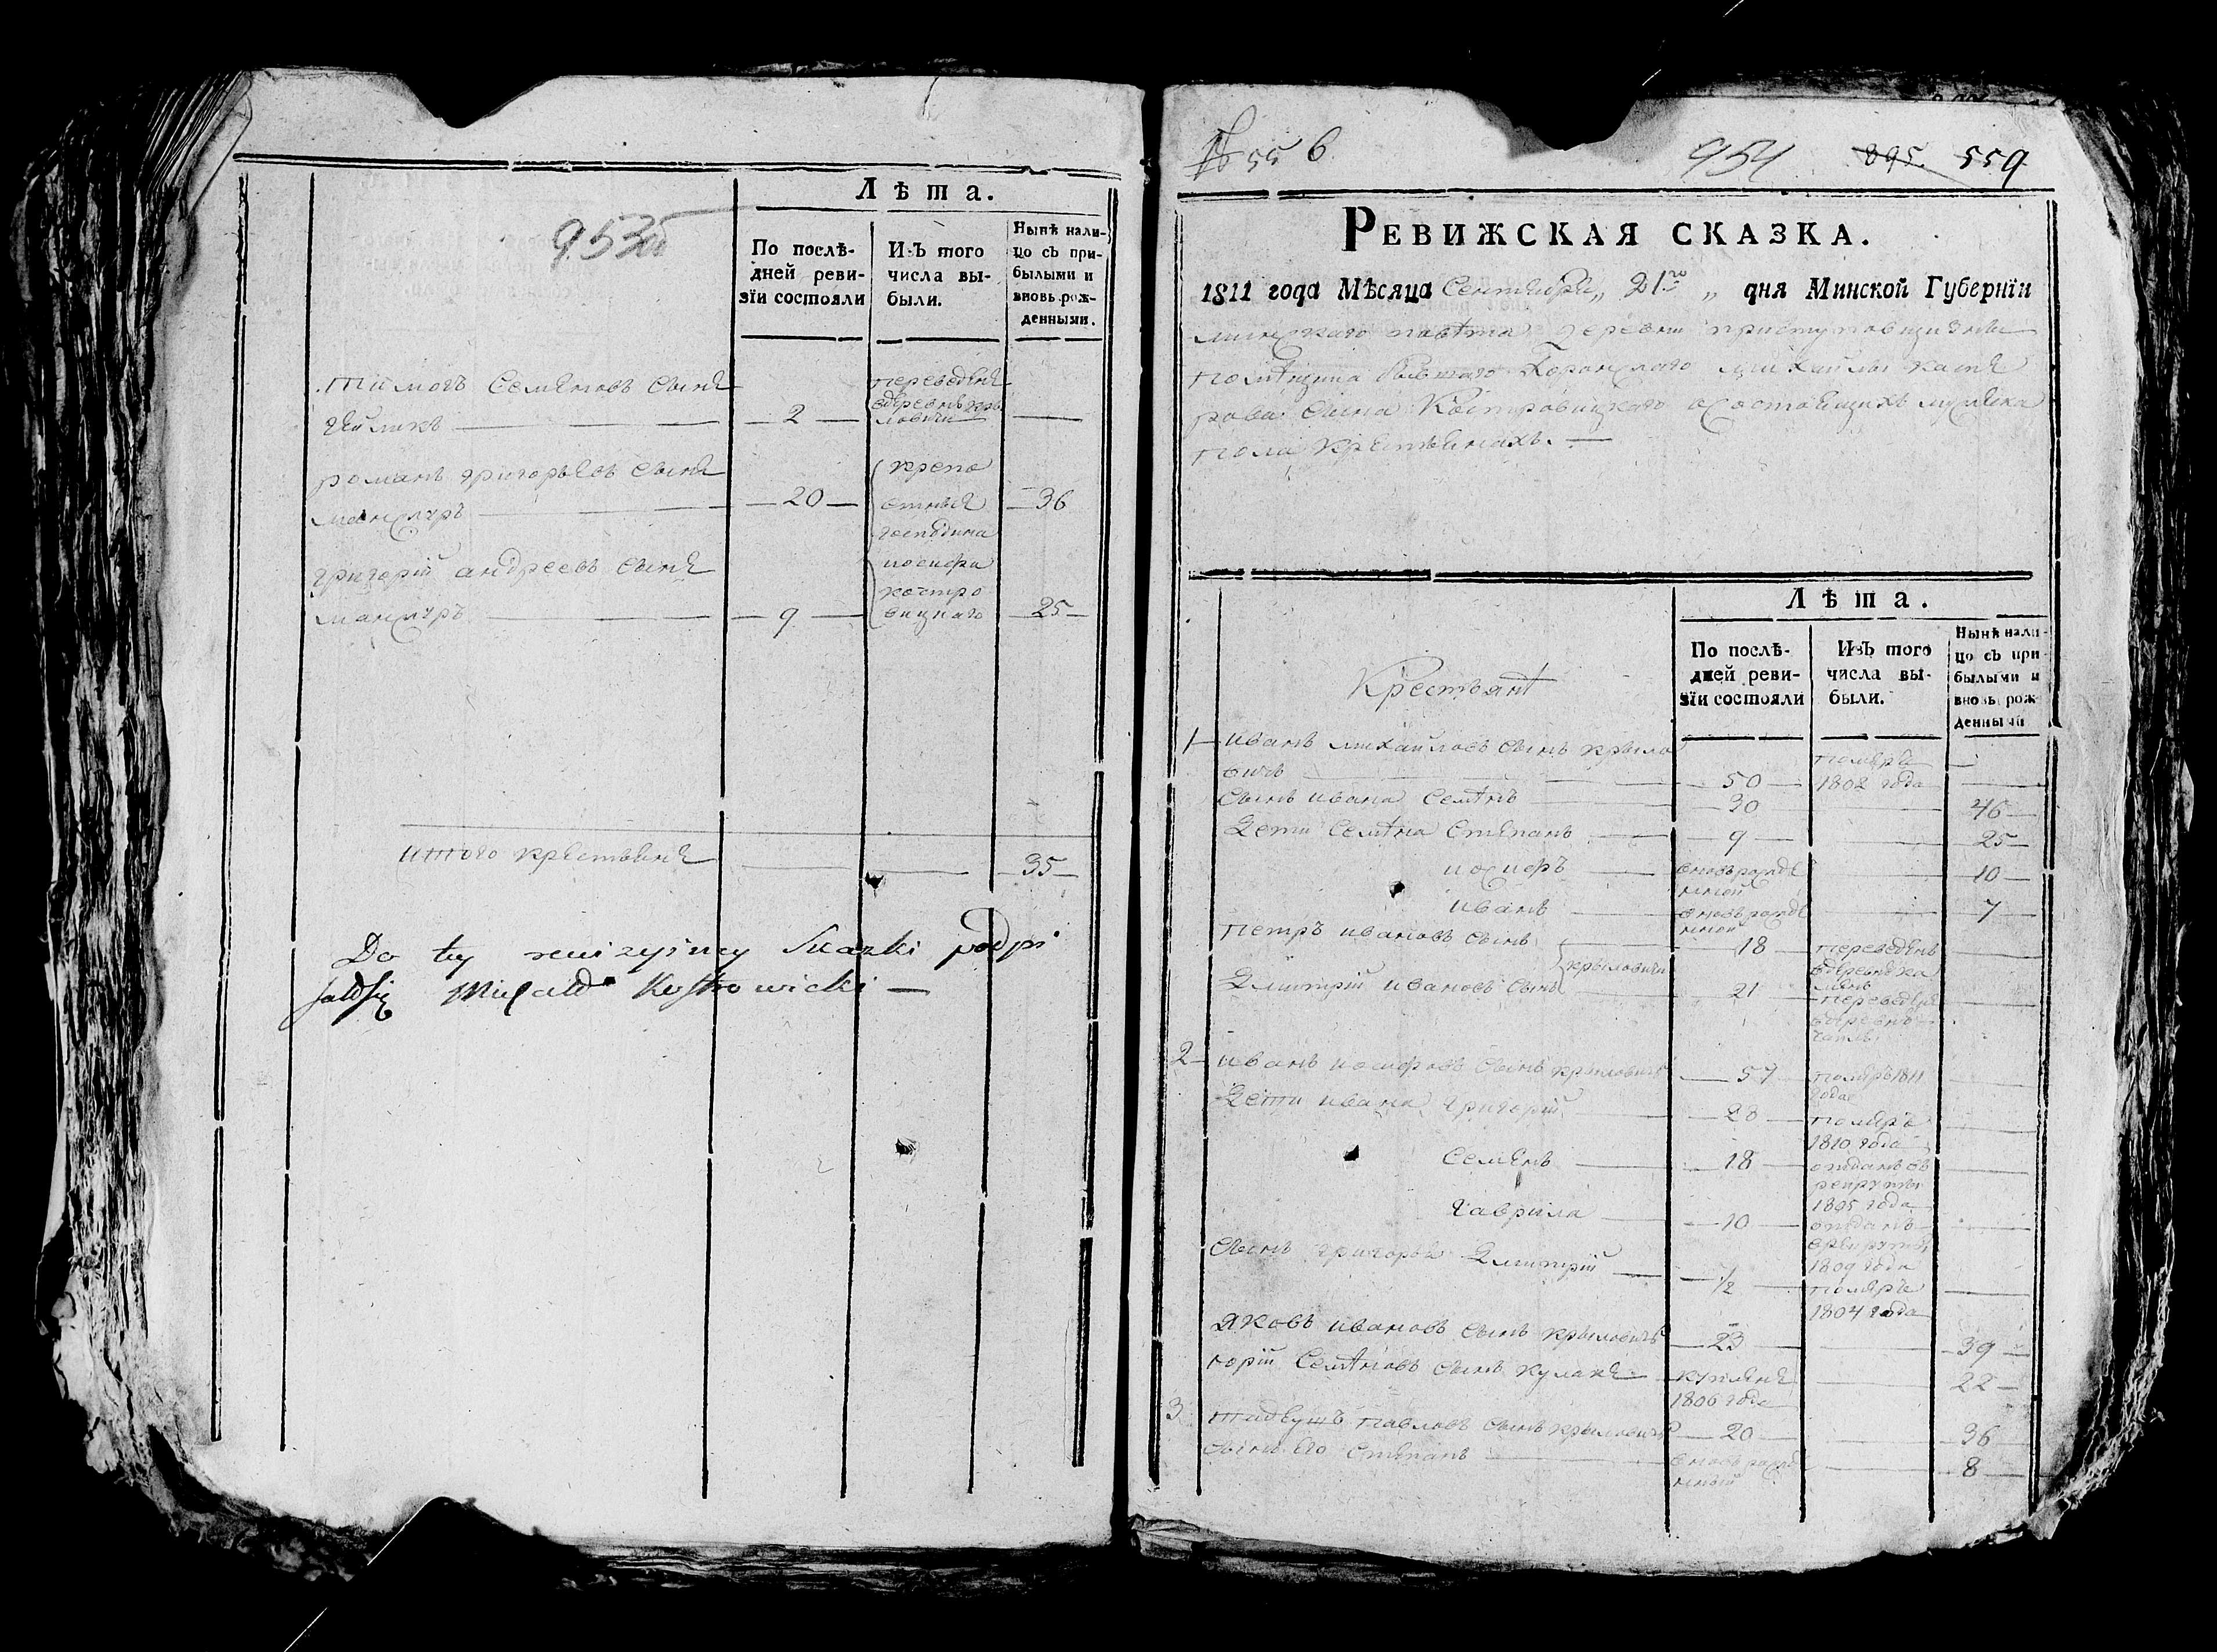 953об
Лѣта.
По послѣ-
дней реви-
зїи состояли
Изъ того
числа вы-
были.
Нынѣ нали-
цо съ при-
былыми и
вновь рож-
денными.
Тимохъ Семеновъ сынъ
2
переведенъ
романъ григорьевъ сынъ
20
крепо
стныя
господина
иосифа
костро
вицкаго
36
григорій андреевъ сынъ
9
25
итого крестьянъ
35
Do tey rewizyiney Skazki podpi
sałsię Michał Kostrowicki
№ 55 6
954 895 559
Ревижская сказка.
1811 года Мѣсяца Сентября „ 21го „ дня Минской Губернїи
минскаго повѣта деревни приступовщизны
помѣщика бывшаго михайлы каше
рова сына Костровицкаго о состоящихъ мужеска
пола крестьянахъ.
Лѣта.
По послѣ-
дней реви-
зїи состояли
Изъ того
числа вы-
были.
Нынѣ нали-
цо съ при-
былыми и
вновь рож-
денными
Крестьянѣ
1 иванъ михайловъ сынъ крыло
вичъ 50 помѣръ 1808 года
сынъ ивана Семѣнъ 30 46
дети Семѣна Степанъ 9 25
иосифъ вновьрожде
нной 10
иванъ вновьрожде
нной 7
Петръ ивановъ сынъ 18 переведенъ
крыловичи
Дмитрій ивановъ сынъ 21 переведенъ
2 иванъ иосифовъ сынъ крыловичъ 57 помѣръ 1811
года
дети ивана григорій 28 помѣръ
1810 года
Семенъ 18 отданъ въ
рекруты
1805 года
гаврила 10 отданъ
врекруты
1809 года
сынъ григорья Дмитрій 1/2 помѣръ
1804 года
яковъ ивановъ сынъ крыловичъ 23 39
Семѣновъ сынъ кулакъ купленъ
1806 года 22
3 тадеушъ павловъ сынъ крыловичъ 20 36
сынъ его Степанъ вновьрожде
нный 8